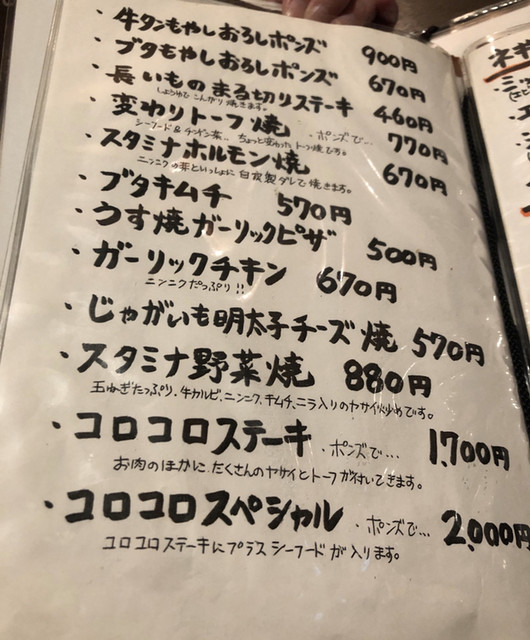 ・牛タンもやしおろしポンズ 900円
・ブタもやしおろしポンズ 670円
・長いものまる切りステーキ 460円
しょうゆでこんがり焼きます。
・変わりトーフ焼 ・ポンズで… 770円
シーフード&チゲン菜… ちょっと変わったトーフ焼です。
・スタミナホルモン焼 670円
ニンニクの芽といっしょに自家製ダレで焼きます。
・ブタキムチ 570円
・うす焼ガーリックピザ 500円
・ガーリックチキン 670円
ニンニクたっぷり!!
・じゃがいも明太子チーズ焼 570円
・スタミナ野菜焼 880円
玉ねぎたっぷり、牛カルビ、ニンニク、キムチ、ニラ入りのヤサイ炒めです。
・コロコロステーキ ・ポンズで… 1,700円
お肉のほかに、たくさんのヤサイとトーフが付いてきます。
・コロコロスペシャル ・ポンズで… 2,000円
コロコロステーキにプラスシーフードが入ります。
ネギ